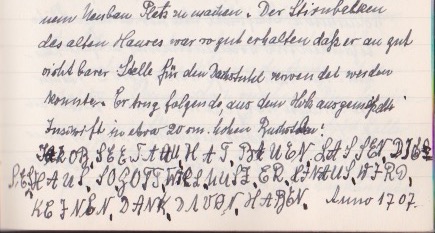 nem Neubau Platz zu machen. Der Stirnbalken
des alten Hauses war so gut erhalten daß er an gut
sichtbarer Stelle für den Dachstuhl verwendet werden
konnte. Er trug folgende, aus dem Holz ausgemeißelte
Inschrift in etwa 20 cm. hohen Buchstaben:
JAKOB, SEETAU HAT, BAUEN, LASSEN, DIE
SES HAUS, SO GOTT, WILL MUSZ ER, HINAUS, WIRD,
KEINEN, DANK, DAVON, HABEN, Anno 1707.